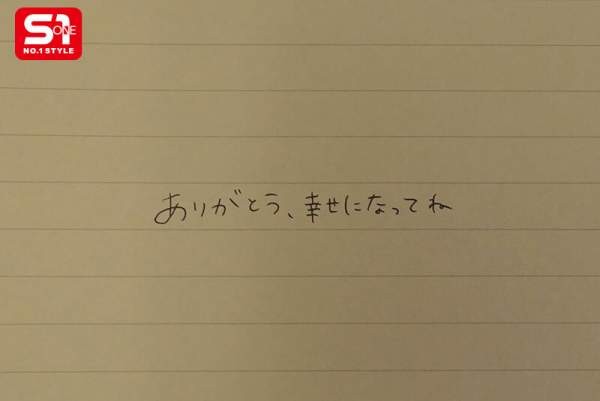 S1
ONE
NO.1 STYLE
ありがとう、幸せになってね